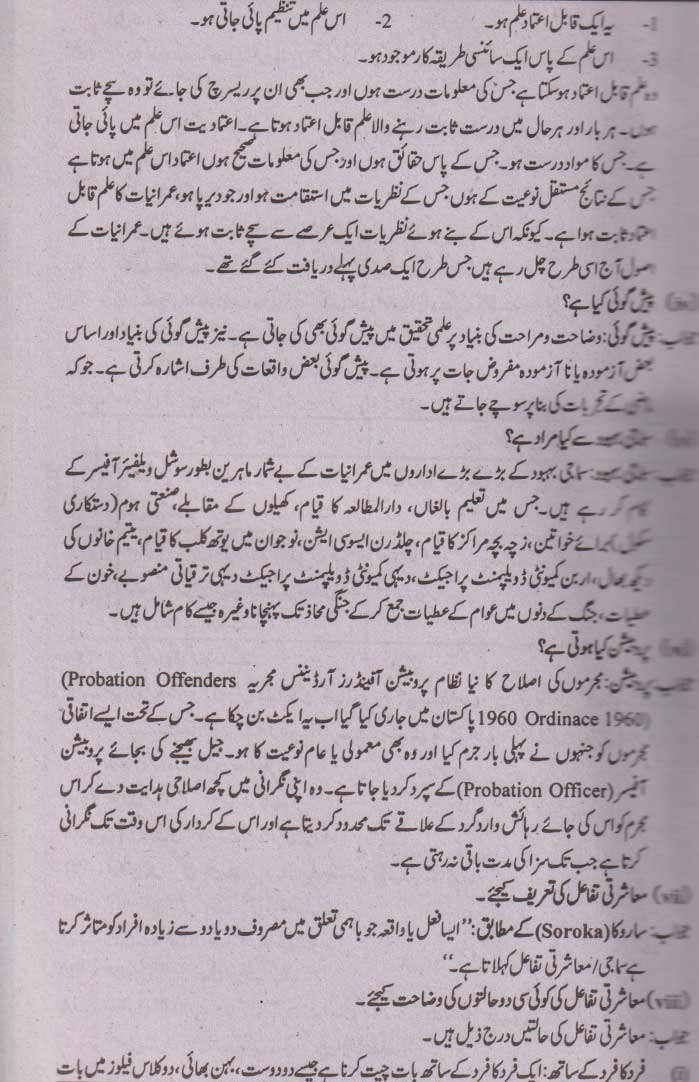 1- یہ ایک قابل اعتماد علم ہو۔ 2- اس علم میں تنظیم پائی جاتی ہو۔
3- اس علم کے پاس ایک سائنسی طریقہ کار موجود ہو۔
وہ علم قابل اعتماد ہو سکتا ہے جس کی معلومات درست ہوں اور جب بھی ان پر ریسرچ کی جائے تو وہ سچے ثابت
ہوں۔ ہر بار اور ہر حال میں درست ثابت رہنے والا علم قابل اعتماد ہوتا ہے۔ اعتمادیت اس علم میں پائی جاتی
ہے۔ جس کا مواد درست ہو۔ جس کے پاس حقائق ہوں اور جس کی معلومات صحیح ہوں اعتماد اس علم میں ہوتا ہے
جس کے نتائج مستقل نوعیت کے ہوں جس کے نظریات میں استقامت ہو اور جو دیرپا ہو، عمرانیات کا علم قابل
اعتماد ثابت ہوا ہے۔ کیونکہ اس کے بنے ہوئے نظریات ایک عرصے سے سچے ثابت ہوئے ہیں۔ عمرانیات کے
اصول آج اسی طرح چل رہے ہیں جس طرح ایک صدی پہلے دریافت کئے گئے تھے۔
پیش گوئی کیا ہے؟
جواب: پیش گوئی: وضاحت و مراحت کی بنیاد پر علمی تحقیق میں پیش گوئی بھی کی جاتی ہے۔ نیز پیش گوئی کی بنیاد اور اساس
بعض آزمودہ یا نا آزمودہ مفروض جات پر ہوتی ہے۔ پیش گوئی بعض واقعات کی طرف اشارہ کرتی ہے۔ جو کہ
ماضی کے تجربات کی بنا پر سوچے جاتے ہیں۔
سماجی بہبود سے کیا مراد ہے؟
جواب: سماجی بہبود: سماجی بہبود کے بڑے بڑے اداروں میں عمرانیات کے بے شمار ماہرین بطور سوشل ویلفیئر آفیسر کے
کام کر رہے ہیں۔ جس میں تعلیم بالغاں، دارالمطالعہ کا قیام، کھیلوں کے مقابلے، صنعتی ہوم (دستکاری
سکول) برائے خواتین، زچہ بچہ مراکز کا قیام، چلڈرن ایسوسی ایشن، نوجوان میں یوتھ کلب کا قیام، یتیم خانوں کی
دیکھ بھال، اربن کمیونٹی ڈویلپمنٹ پراجیکٹ، دیہی کمیونٹی ڈویلپمنٹ پراجیکٹ دیہی ترقیاتی منصوبے، خون کے
عطیات، جنگ کے دنوں میں عوام کے عطیات جمع کر کے جنگی محاذ تک پہنچانا وغیرہ جیسے کام شامل ہیں۔
پروبیشن کیا ہوتی ہے؟
جواب: پروبیشن: مجرموں کی اصلاح کا نیا نظام پروبیشن آفینڈرز آرڈیننس مجریہ Probation Offenders)
1960 Ordinace 1960) پاکستان میں جاری کیا گیا اب یہ ایکٹ بن چکا ہے۔ جس کے تحت ایسے اتفاقی
مجرموں کو جنہوں نے پہلی بار جرم کیا اور وہ بھی معمولی یا عام نوعیت کا ہو۔ جیل بھیجنے کی بجائے پروبیشن
آفیسر (Probation Officer) کے سپرد کر دیا جاتا ہے۔ وہ اپنی نگرانی میں کچھ اصلاحی ہدایت دے کر اس
مجرم کو اس کی جائے رہائش و اردگرد کے علاقے تک محدود کر دیتا ہے اور اس کے کردار کی اس وقت تک نگرانی
کرتا ہے جب تک سزا کی مدت باقی نہ رہتی ہے۔
(vii) معاشرتی تفاعل کی تعریف کیجئے۔
جواب: ساروکا (Soroka) کے مطابق: ’’ایسا فعل یا واقعہ جو باہمی تعلق میں مصروف دو یا دو سے زیادہ افراد کو متاثر کرتا
ہے سماجی/معاشرتی تفاعل کہلاتا ہے۔‘‘
(viii) معاشرتی تفاعل کی کوئی سی دو حالتوں کی وضاحت کیجئے۔
جواب: معاشرتی تفاعل کی حالتیں درج ذیل ہیں۔
(i) فرد کا فرد کے ساتھ: ایک فرد کا فرد کے ساتھ بات چیت کرنا ہے جیسے دو دوست، بہن بھائی، دو کلاس فیلوز میں بات